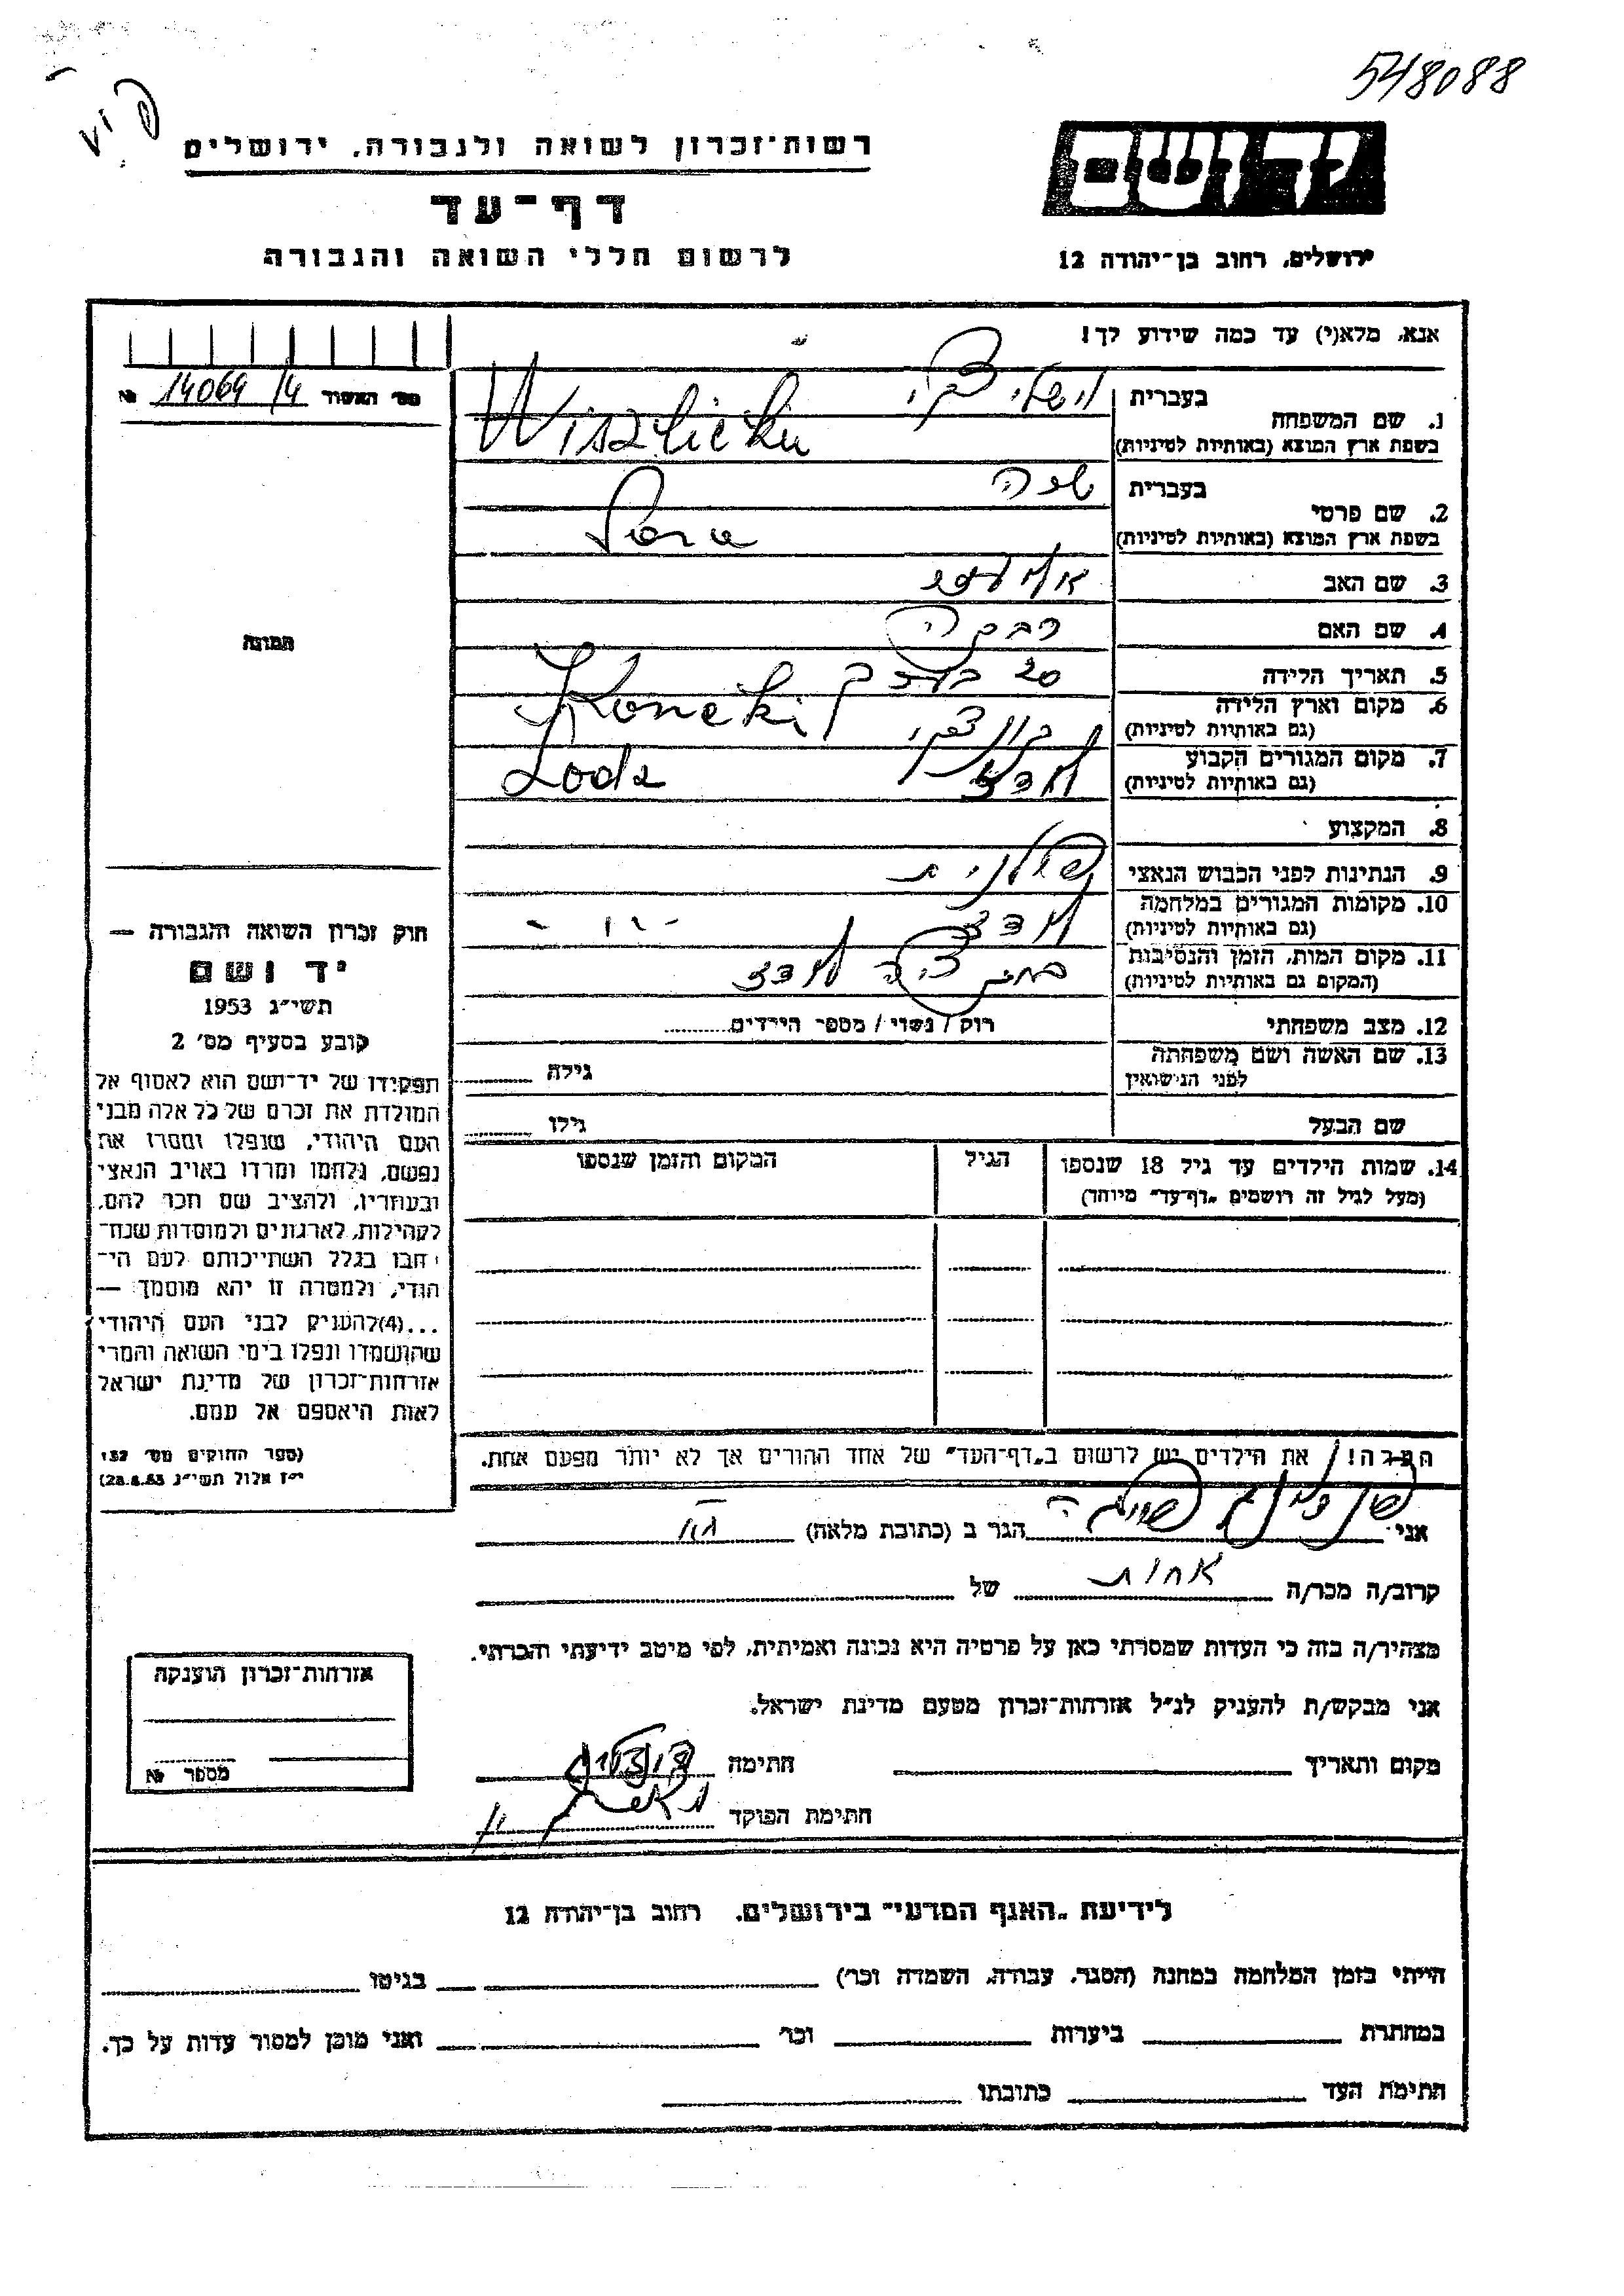 548088
יד ושם
רשות־זכרון לשואה ולגבורה, ירושלים
דף־עד
לרשום חללי השואה והגבורה
ירושלים, רחוב בן־יהודה 12
אנא, מלא(י) עד כמה שידוע לך!
מס׳ האשור 14064/4 №
תמונה
1. שם המשפחה
בעברית
וישליצקי
בשפת ארץ המוצא (באותיות לטיניות)
Wiszlicki
2. שם פרטי
בעברית
שרה
בשפת ארץ המוצא (באותיות לטיניות)
Sara
3. שם האב
4. שם האם
רבקה
5. תאריך הלידה
20 בערך
6. מקום וארץ הלידה
(גם באותיות לטיניות)
קונצקי Koncki
7. מקום המגורים הקבוע
(גם באותיות לטיניות)
לודז Lodz
8. המקצוע
9. הנתינות לפני הכבוש הנאצי
פולנית
10. מקומות המגורים במלחמה
(גם באותיות לטיניות)
לודז - " -
11. מקום המות, הזמן והנסיבות
(המקום גם באותיות לטיניות)
לודז
12. מצב משפחתי
רוק / נשוי / מספר הילדים
13. שם האשה ושם משפחתה
לפני הנישואין
גילה
שם הבעל
גילו
14. שמות הילדים עד גיל 18 שנספו
(מעל לגיל זה רושמים „דף־עד״ מיוחד)
הגיל
המקום והזמן שנספו
חוק זכרון השואה והגבורה —
יד ושם
תשי״ג 1953
קובע בסעיף מס׳ 2
תפקידו של יד־ושם הוא לאסוף אל
המולדת את זכרם של כל אלה מבני
העם היהודי, שנפלו ומסרו את
נפשם, נלחמו ומרדו באויב הנאצי
ובעוזריו, ולהציב שם וזכר להם,
לקהילות, לארגונים ולמוסדות שנח־
רבו בגלל השתייכותם לעם הי־
הודי, ולמטרה זו יהא מוסמך —
...(4) להעניק לבני העם היהודי
שהושמדו ונפלו בימי השואה והמרי
אזרחות־זכרון של מדינת ישראל
לאות היאספם אל עמם.
(ספר החוקים מס׳ 132,
י״ז אלול תשי״ג 28.8.53)
הערה! את הילדים יש לרשום ב„דף־העד״ של אחד ההורים אך לא יותר מפעם אחת.
אני הגר ב (כתובת מלאה)
קרוב/ה מכר/ה אחות של
מצהיר/ה בזה כי העדות שמסרתי כאן על פרטיה היא נכונה ואמיתית, לפי מיטב ידיעתי והכרתי.
אני מבקש/ת להעניק לנ״ל אזרחות־זכרון מטעם מדינת ישראל.
מקום ותאריך חתימה
חתימת הפוקד
אזרחות־זכרון הוענקה
מספר №
לידיעת „האגף המדעי״ בירושלים, רחוב בן־יהודה 12
הייתי בזמן המלחמה במחנה (הסגר, עבודה, השמדה וכו׳) בגיטו
במחתרת ביערות וכו׳ ואני מוכן למסור עדות על כך.
חתימת העד כתובתו